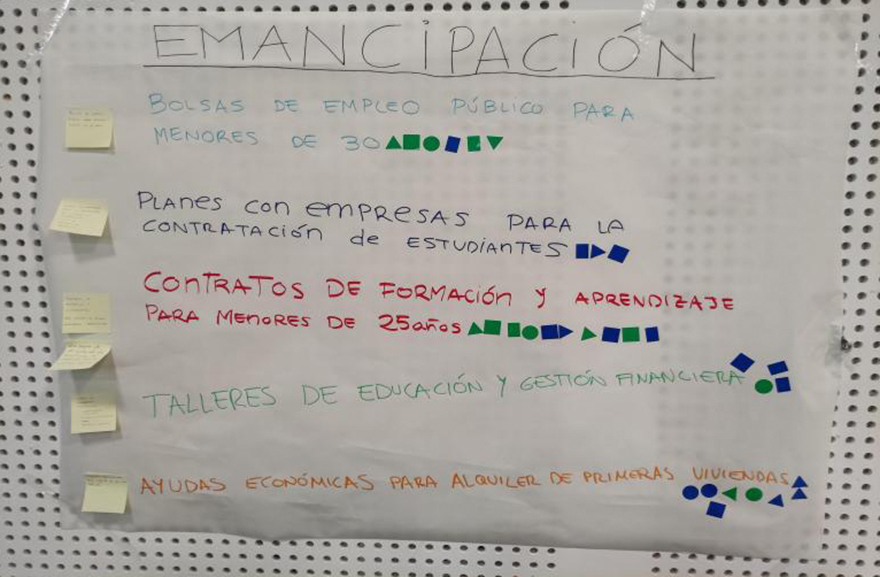 EMANCIPACIÓN
BOLSAS DE EMPLEO PÚBLICO PARA
MENORES DE 30
PLANES CON EMPRESAS PARA LA
CONTRATACIÓN de ESTUDIANTES
CONTRATOS DE FORMACIÓN Y APRENDIZAJE
PARA MENORES DE 25 años
TALLERES DE EDUCACIÓN Y GESTIÓN FINANCIERA
AYUDAS ECONÓMICAS PARA ALQUILER DE PRIMERAS VIVIENDAS